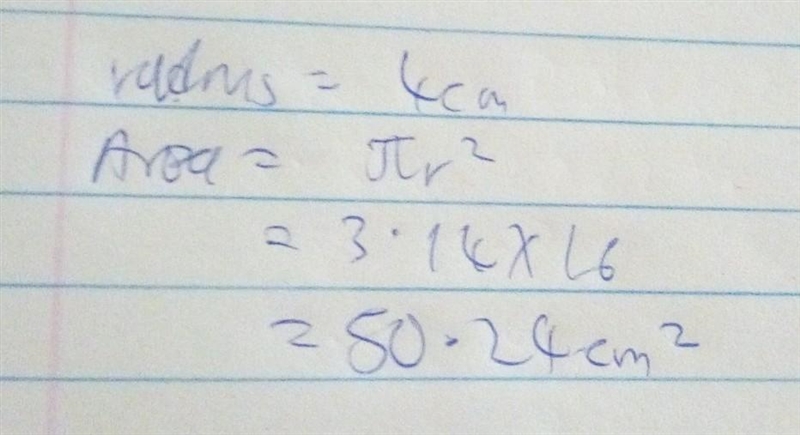 radius = 4cm
Area = πr²
= 3·14 X 16
= 50·24cm²